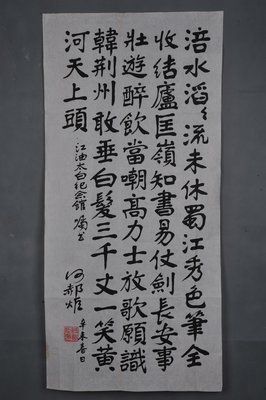 涪水滔〻流未休蜀江秀色筆全
收結廬匡嶺知書易仗劍長安事
壯遊醉飲當嘲髙力士放歌願識
韓荆州敢垂白髮三千丈一笑黄
河天上頭
江油太白纪念館嘱书
辛未春日